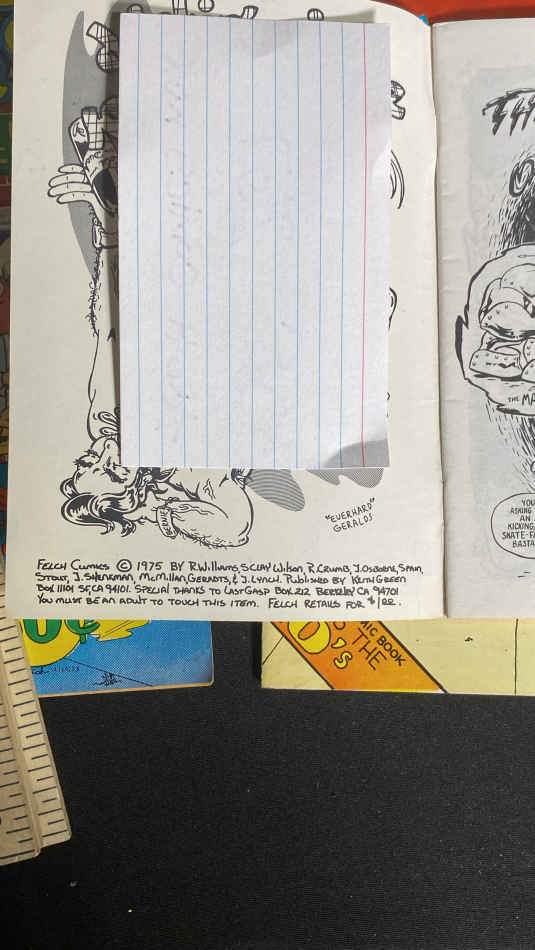 "EVERHARD"
GERALDS
BERNIE
FELCH CUMICS © 1975 BY R. WILLIAMS, S. CLAY WILSON, R. CRUMB, J. OSBORNE, SPAIN,
STOUT, J. SHENKMAN, McMILLAN, GERADTS, & J. LYNCH. PUBLISHED BY KEITH GREEN
BOX 11101 SF, CA 94101. SPECIAL THANKS TO LAST GASP BOX 212 BERKELEY CA 94701
YOU MUST BE AN ADULT TO TOUCH THIS ITEM. FELCH RETAILS FOR $1.00.
TH
THE MA
YOU
ASKING
AN
KICKING,
SKATE-F
BASTA
MIC BOOK
O THE
O'S